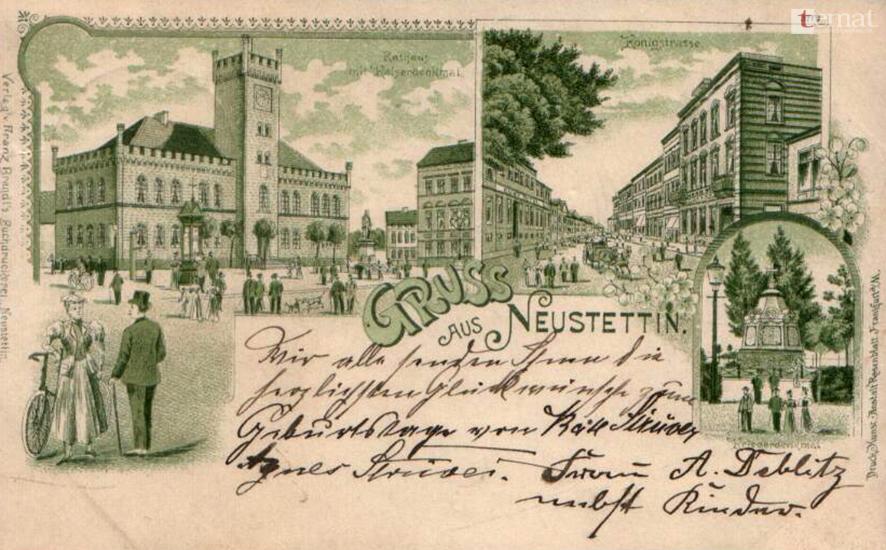 temat
Rathaus
mit Kaiserdenkmal.
Königstrasse
GRUSS
AUS NEUSTETTIN.
Wir alle senden Ihnen die
herzlichsten Glückwünsche zum
Geburtstage von
Agnes Frau A. Deblitz
nebst Kinder.
Kriegerdenkmal
Verlag v. Franz Brandt's Buchdruckerei, Neustettin.
Druck Kunst-Anstalt Rosenblatt, Frankfurt a/M.